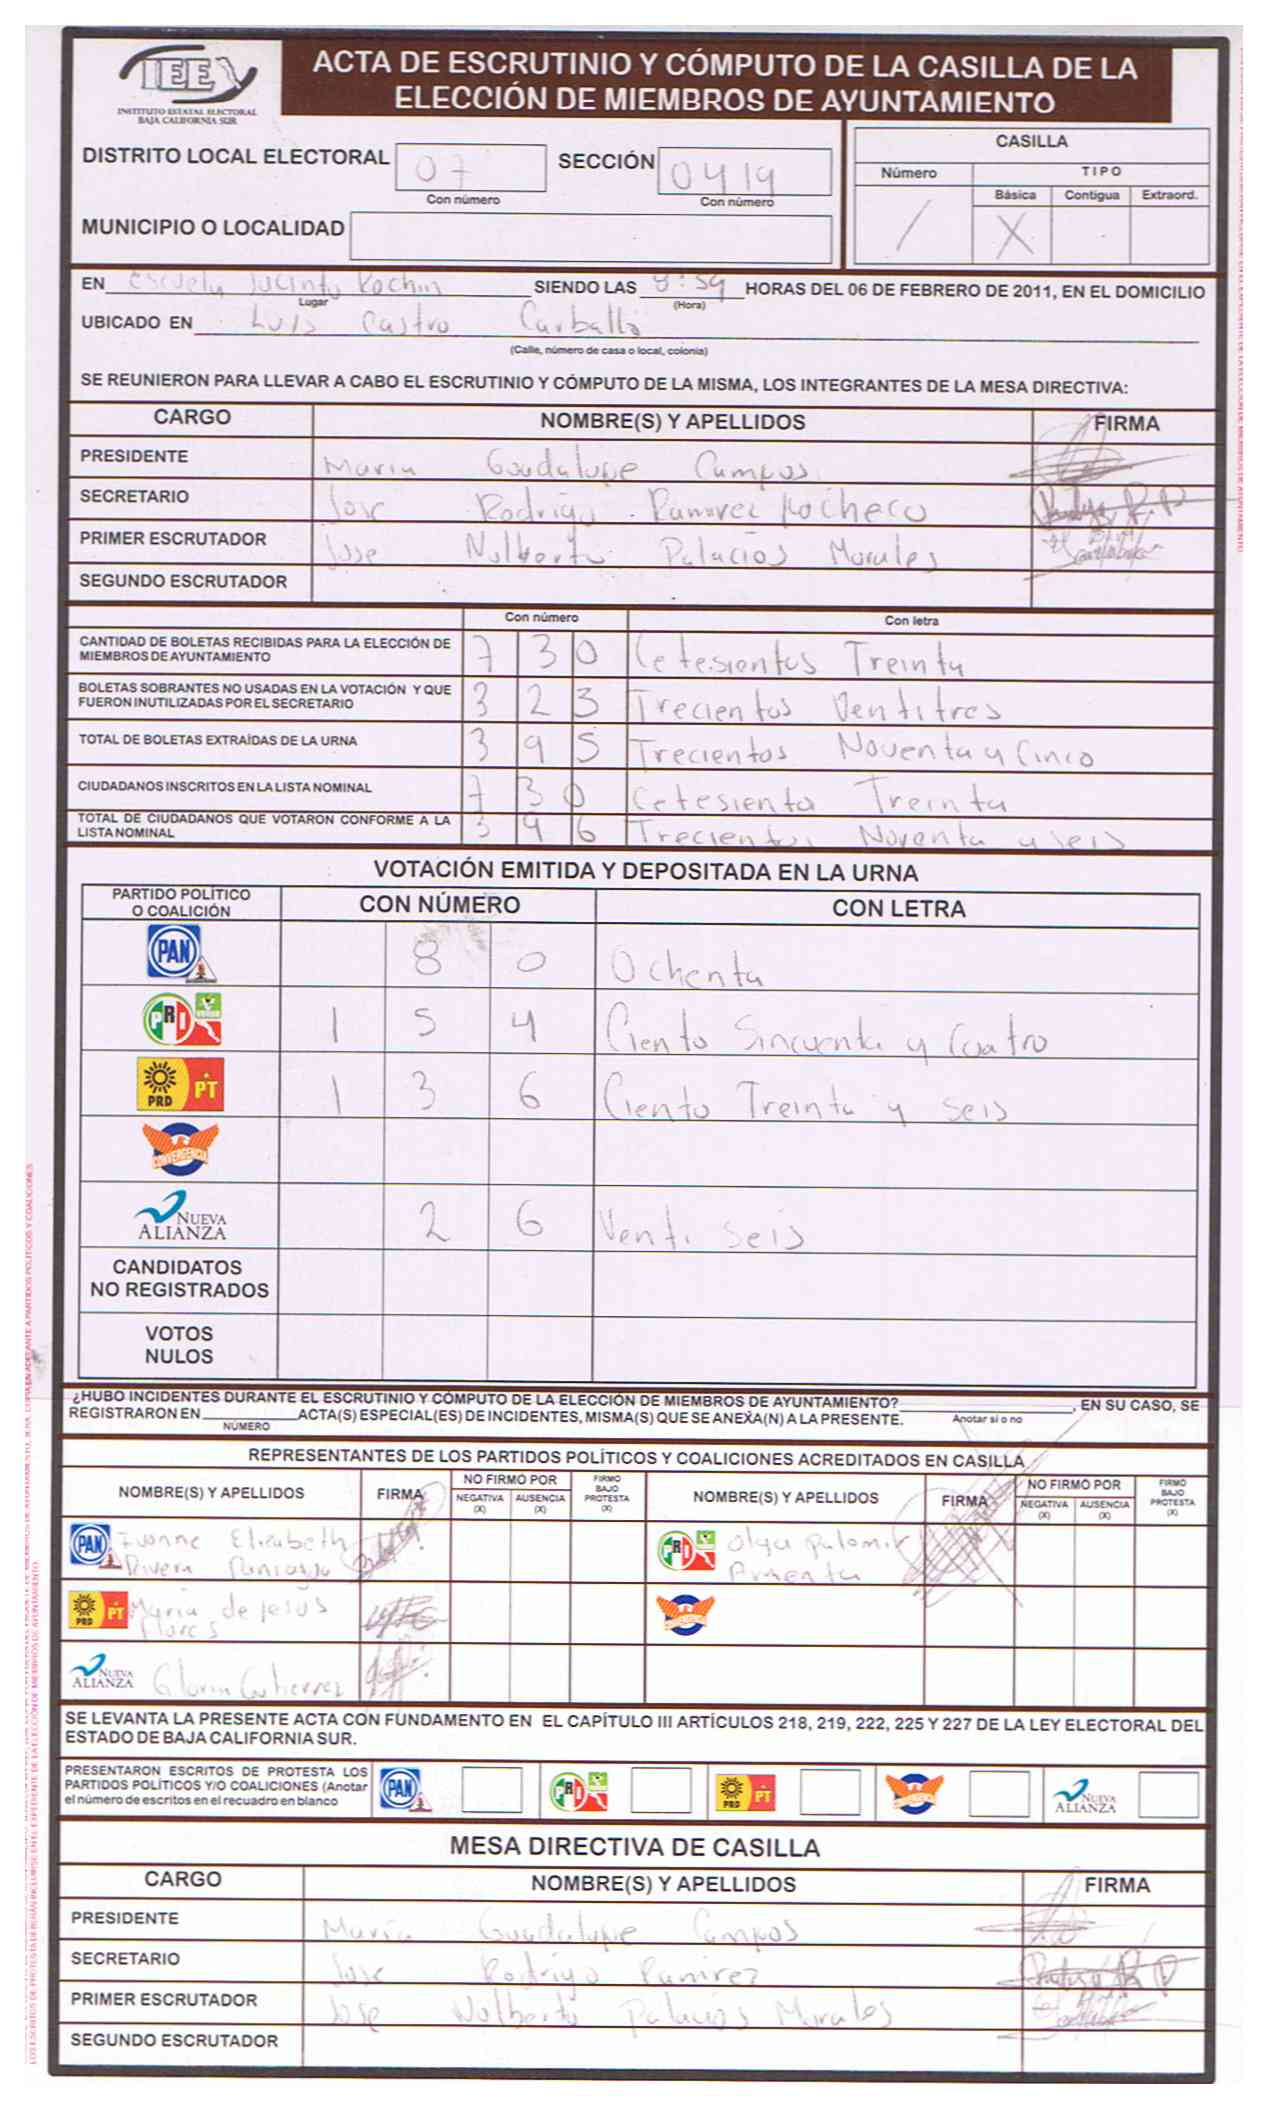 IEEX
INSTITUTO ESTATAL ELECTORAL
BAJA CALIFORNIA SUR
ACTA DE ESCRUTINIO Y CÓMPUTO DE LA CASILLA DE LA
ELECCIÓN DE MIEMBROS DE AYUNTAMIENTO
DISTRITO LOCAL ELECTORAL 07 SECCIÓN 0419
Con número Con número
MUNICIPIO O LOCALIDAD
CASILLA
Número TIPO
Básica Contigua Extraord.
/ X
EN Escuela Jacinto Kochin SIENDO LAS 8:59 HORAS DEL 06 DE FEBRERO DE 2011, EN EL DOMICILIO
Lugar (Hora)
UBICADO EN Luis Castro Carballo
(Calle, número de casa o local, colonia)
SE REUNIERON PARA LLEVAR A CABO EL ESCRUTINIO Y CÓMPUTO DE LA MISMA, LOS INTEGRANTES DE LA MESA DIRECTIVA:
CARGO NOMBRE(S) Y APELLIDOS FIRMA
PRESIDENTE Maria Guadalupe Campos
SECRETARIO Jose Rodrigo Ramirez Pacheco
PRIMER ESCRUTADOR Jose Nolberto Palacios Morales
SEGUNDO ESCRUTADOR
Con número Con letra
CANTIDAD DE BOLETAS RECIBIDAS PARA LA ELECCIÓN DE
MIEMBROS DE AYUNTAMIENTO 7 3 0 Cetesientos Treinta
BOLETAS SOBRANTES NO USADAS EN LA VOTACIÓN Y QUE
FUERON INUTILIZADAS POR EL SECRETARIO 3 2 3 Trecientos Ventitres
TOTAL DE BOLETAS EXTRAÍDAS DE LA URNA 3 9 5 Trecientos Noventa y Cinco
CIUDADANOS INSCRITOS EN LA LISTA NOMINAL 7 3 0 Cetesiento Treinta
TOTAL DE CIUDADANOS QUE VOTARON CONFORME A LA
LISTA NOMINAL 3 9 6 Trecientos Noventa y seis
VOTACIÓN EMITIDA Y DEPOSITADA EN LA URNA
PARTIDO POLÍTICO
O COALICIÓN CON NÚMERO CON LETRA
PAN 8 0 Ochenta
PRI 1 5 4 Ciento Sincuenta y Cuatro
PRD PT 1 3 6 Ciento Treinta y seis
CONVERGENCIA
NUEVA
ALIANZA 2 6 Venti seis
CANDIDATOS
NO REGISTRADOS
VOTOS
NULOS
¿HUBO INCIDENTES DURANTE EL ESCRUTINIO Y CÓMPUTO DE LA ELECCIÓN DE MIEMBROS DE AYUNTAMIENTO? , EN SU CASO, SE
REGISTRARON EN ACTA(S) ESPECIAL(ES) DE INCIDENTES, MISMA(S) QUE SE ANEXA(N) A LA PRESENTE. Anotar si o no
NÚMERO
REPRESENTANTES DE LOS PARTIDOS POLÍTICOS Y COALICIONES ACREDITADOS EN CASILLA
NOMBRE(S) Y APELLIDOS FIRMA NO FIRMÓ POR NEGATIVA (X) AUSENCIA (X) FIRMÓ BAJO PROTESTA (X) NOMBRE(S) Y APELLIDOS FIRMA NO FIRMÓ POR NEGATIVA (X) AUSENCIA (X) FIRMÓ BAJO PROTESTA (X)
PAN Ivonne Elizabeth PRI Olga Palomir
Rivera Paniagua Armenta
PRD PT Maria de Jesus
Flores
NUEVA
ALIANZA Gloria Gutierrez
SE LEVANTA LA PRESENTE ACTA CON FUNDAMENTO EN EL CAPÍTULO III ARTÍCULOS 218, 219, 222, 225 Y 227 DE LA LEY ELECTORAL DEL
ESTADO DE BAJA CALIFORNIA SUR.
PRESENTARON ESCRITOS DE PROTESTA LOS
PARTIDOS POLÍTICOS Y/O COALICIONES (Anotar
el número de escritos en el recuadro en blanco
PAN PRI PRD PT NUEVA ALIANZA
MESA DIRECTIVA DE CASILLA
CARGO NOMBRE(S) Y APELLIDOS FIRMA
PRESIDENTE Maria Guadalupe Campos
SECRETARIO Jose Rodrigo Ramirez
PRIMER ESCRUTADOR Jose Nolberto Palacios Morales
SEGUNDO ESCRUTADOR